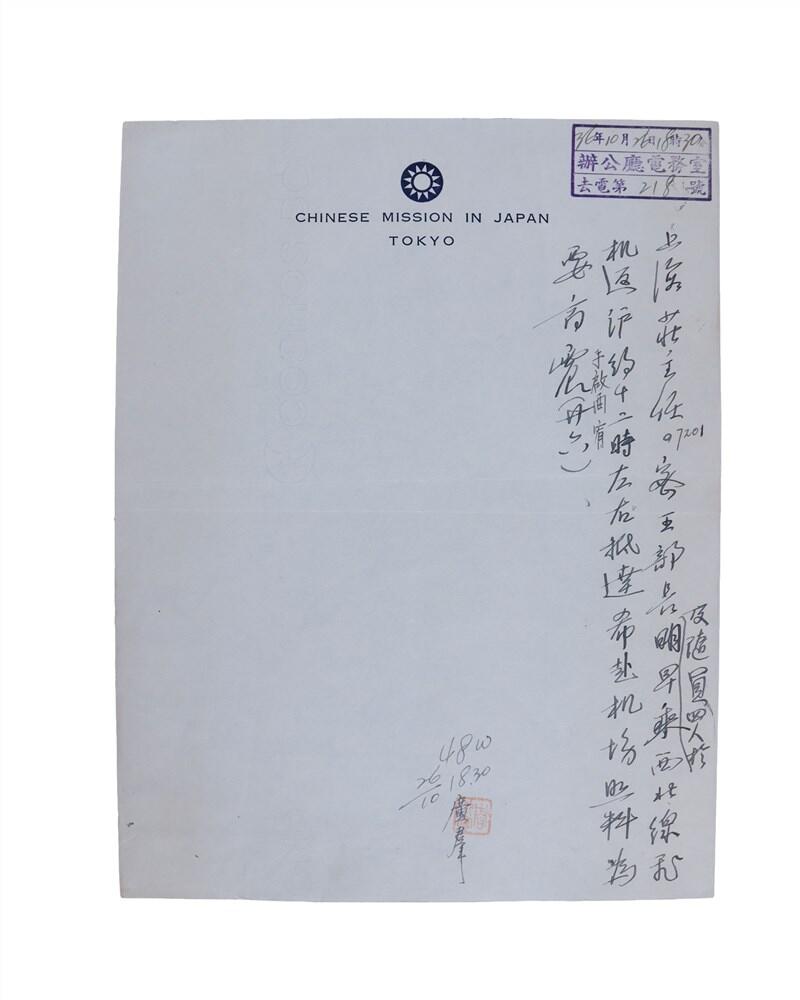 36年10月26日18時30
辦公廳電務室
去電第218號
CHINESE MISSION IN JAPAN
TOKYO
上海莊主任07201密王部長明早乘西北線飛
及隨員四人於
机返沪約十二時左右抵達希赴机場照料為
要商震
于啟酉宥
48W
18.30
26/10